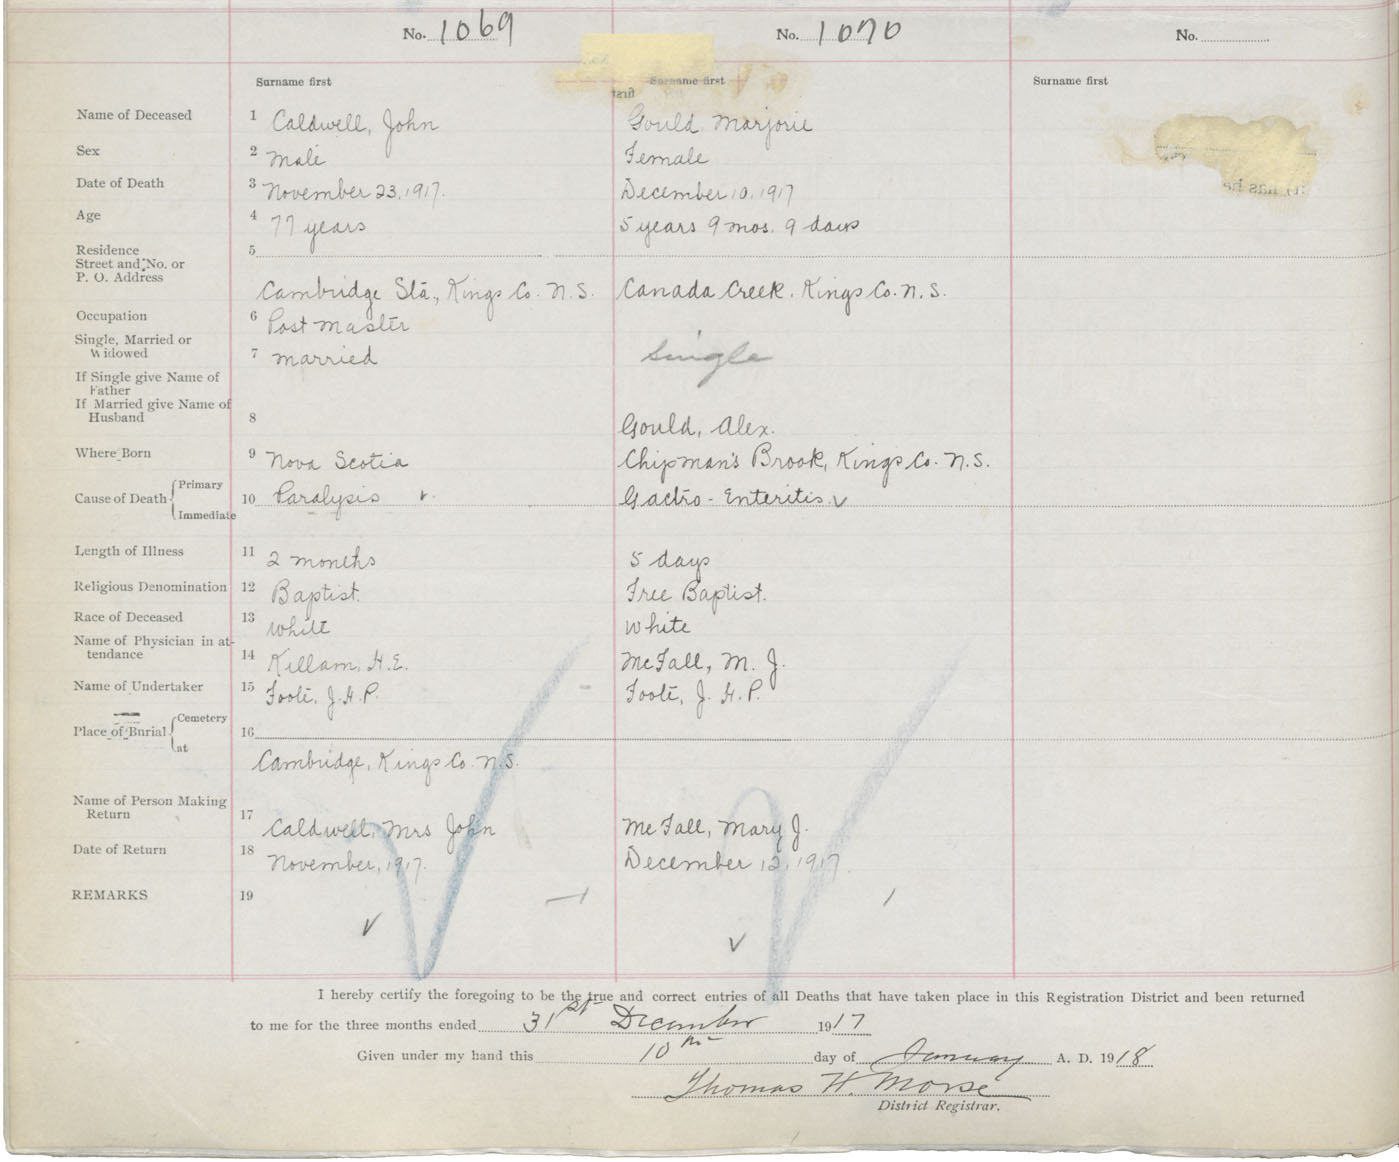 No. 1069 No. 1070 No.
Surname first Surname first Surname first
Name of Deceased 1 Caldwell, John Gould Marjorie
Sex 2 Male Female
Date of Death 3 November 23, 1917. December 10, 1917
Age 4 77 years 5 years 9 mos. 9 days
Residence
Street and No. or
P. O. Address 5
Cambridge Sta., Kings Co. N.S. Canada Creek, Kings Co. N.S.
Occupation 6 Post Master
Single, Married or
Widowed 7 married Single
If Single give Name of
Father
If Married give Name of
Husband 8 Gould, Alex.
Where Born 9 Nova Scotia Chipman's Brook, Kings Co. N.S.
Cause of Death Primary
Immediate 10 Paralysis Gactro-Enteritis
Length of Illness 11 2 months 5 days
Religious Denomination 12 Baptist. Free Baptist.
Race of Deceased 13 White White
Name of Physician in at-
tendance 14 Killam, H.E. McFall, M. J.
Name of Undertaker 15 Foote, J.H.P. Foote, J. H.P.
Place of Burial Cemetery
at 16
Cambridge, Kings Co. N.S.
Name of Person Making
Return 17 Caldwell, Mrs John McFall, Mary J.
Date of Return 18 November, 1917. December 12, 1917
REMARKS 19
I hereby certify the foregoing to be the true and correct entries of all Deaths that have taken place in this Registration District and been returned
to me for the three months ended 31st December 1917
Given under my hand this 10th day of January A. D. 1918
Thomas H. Morse
District Registrar.